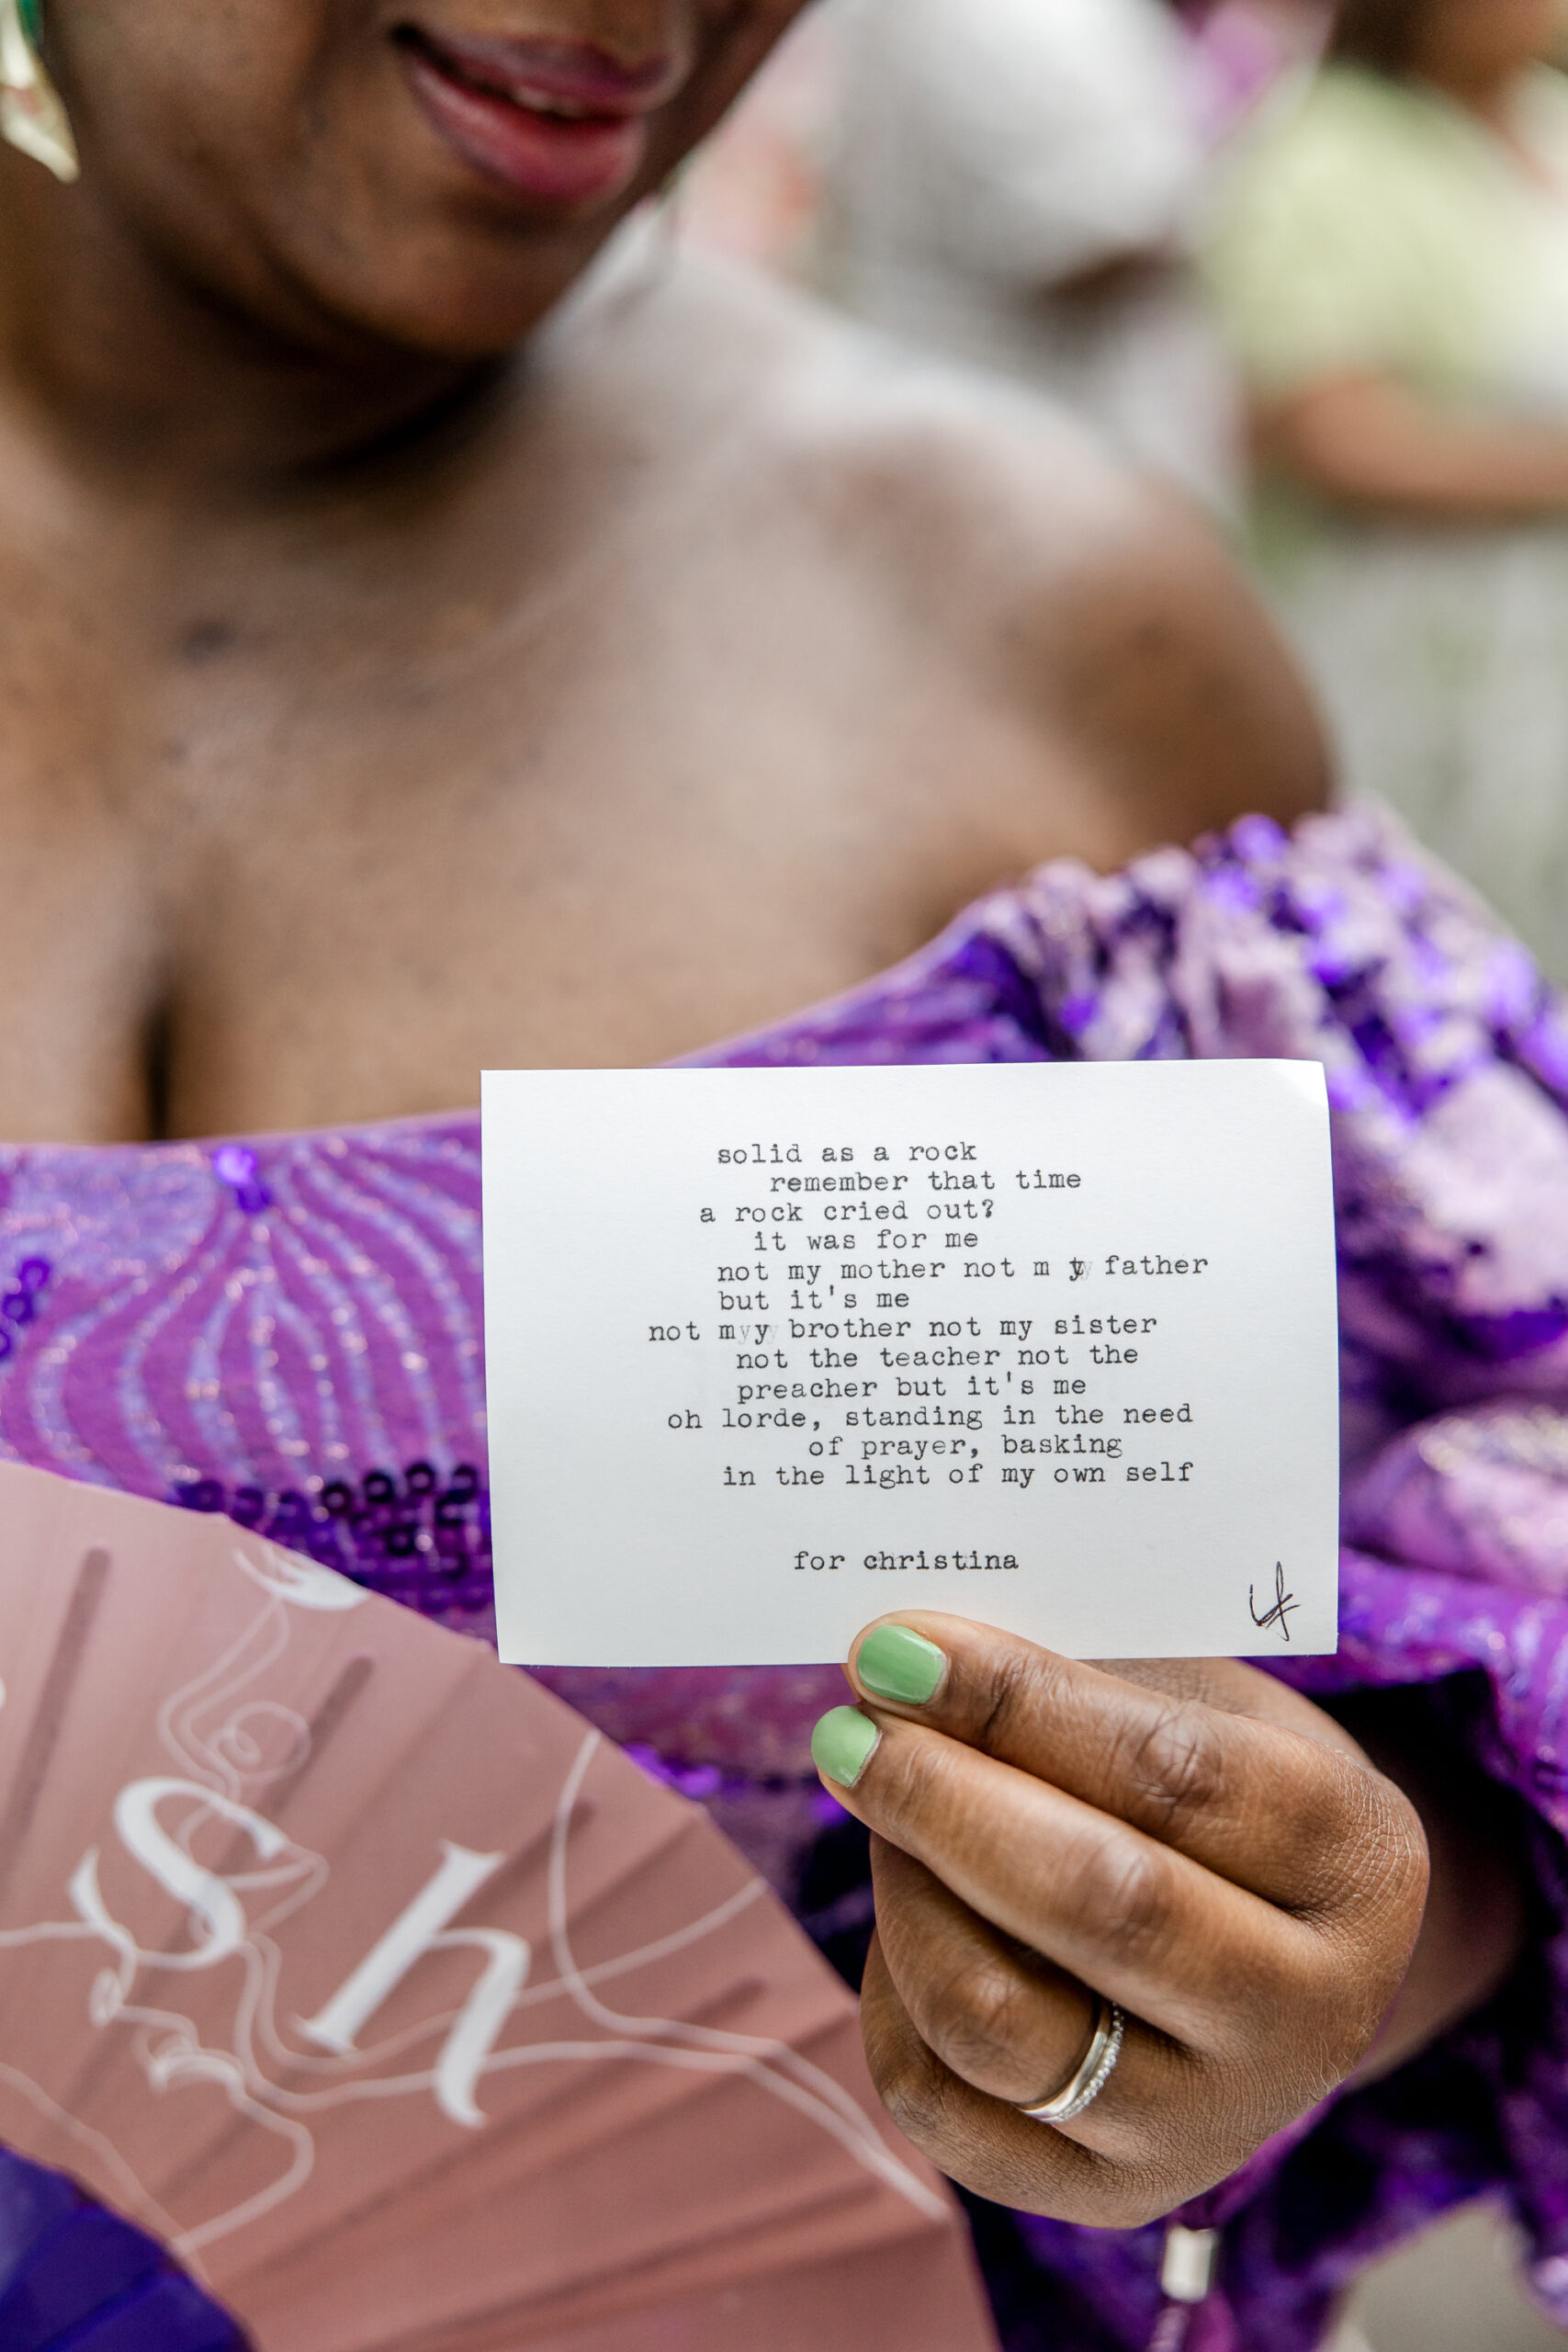 solid as a rock
remember that time
a rock cried out?
it was for me
not my mother not m y father
but it's me
not myy brother not my sister
not the teacher not the
preacher but it's me
oh lorde, standing in the need
of prayer, basking
in the light of my own self
for christina
sh